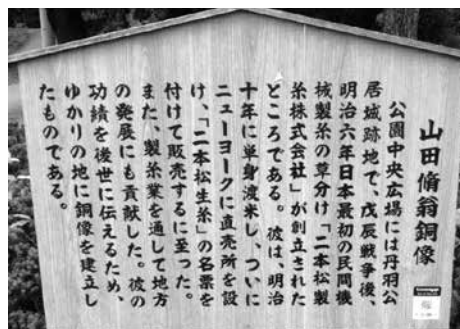 山田脩翁銅像
公園中央広場には丹羽公
居城跡地で、戊辰戦争後、
明治六年日本最初の民間機
械製糸の草分け「二本松製
糸株式会社」が創立された
ところである。彼は明治
十年に単身渡米し、ついに
ニューヨークに直売所を設
け、「二本松生糸」の名票を
付けて販売するに至った。
また、製糸業を通して地方
の発展にも貢献した。彼の
功績を後世に伝えるため、
ゆかりの地に銅像を建立し
たものである。